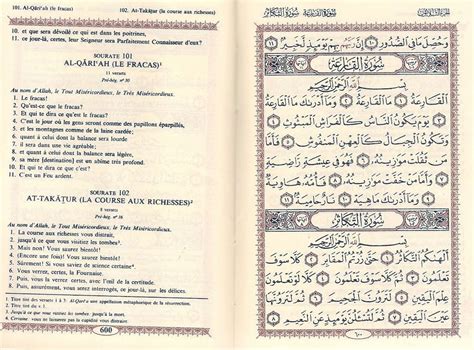 101. Al-Qâri'ah (le fracas) 102. At-Takâṯur (la course aux richesses)
10. et que sera dévoilé ce qui est dans les poitrines,
11. ce jour-là, certes, leur Seigneur sera Parfaitement Connaisseur d'eux?
SOURATE 101
AL-QÂRI'AH (LE FRACAS)¹
11 versets
Pré-hég. n° 30
Au nom d'Allah, le Tout Miséricordieux, le Très Miséricordieux.
1. Le fracas!
2. Qu'est-ce que le fracas?
3. Et qui te dira ce qu'est le fracas?
4. C'est le jour où les gens seront comme des papillons éparpillés,
5. et les montagnes comme de la laine cardée;
6. quant à celui dont la balance sera lourde
7. il sera dans une vie agréable;
8. et quant à celui dont la balance sera légère,
9. sa mère [destination] est un abîme très profond.
10. Et qui te dira ce que c'est?
11. C'est un Feu ardent.
SOURATE 102
AT-TAKÂṮUR (LA COURSE AUX RICHESSES)²
8 versets
Pré-hég. n° 16
Au nom d'Allah, le Tout Miséricordieux, le Très Miséricordieux.
1. La course aux richesses vous distrait,
2. jusqu'à ce que vous visitiez les tombes³.
3. Mais non! Vous saurez bientôt!
4. (Encore une fois)! Vous saurez bientôt!
5. Sûrement! Si vous saviez de science certaine⁴.
6. Vous verrez, certes, la Fournaise.
7. Puis, vous la verrez certes, avec l'œil de la certitude.
8. Puis, assurément, vous serez interrogés, ce jour-là, sur les délices.
1. Titre tiré des versets 1 à 3. Al-Qari'a une appellation métaphorique de la résurrection.
2. Titre tiré du v. 1.
3. Jusqu'à ce que vous visitiez les tombes: jusqu'à ce que vous mouriez.
600
سُورَةُ القَارِعَةِ سُورَةُ التَّكَاثُرِ
وَحُصِّلَ مَا فِي الصُّدُورِ ١٠ إِنَّ رَبَّهُم بِهِمْ يَوْمَئِذٍ لَّخَبِيرٌ ١١
سُورَةُ القَارِعَةِ
بِسْمِ اللَّهِ الرَّحْمَٰنِ الرَّحِيمِ
الْقَارِعَةُ ١ مَا الْقَارِعَةُ ٢ وَمَا أَدْرَاكَ مَا الْقَارِعَةُ ٣
يَوْمَ يَكُونُ النَّاسُ كَالْفَرَاشِ الْمَبْثُوثِ ٤
وَتَكُونُ الْجِبَالُ كَالْعِهْنِ الْمَنفُوشِ ٥ فَأَمَّا
مَن ثَقُلَتْ مَوَازِينُهُ ٦ فَهُوَ فِي عِيشَةٍ رَّاضِيَةٍ
٧ وَأَمَّا مَنْ خَفَّتْ مَوَازِينُهُ ٨ فَأُمُّهُ
هَاوِيَةٌ ٩ وَمَا أَدْرَاكَ مَا هِيَهْ ١٠ نَارٌ حَامِيَةٌ ١١
سُورَةُ التَّكَاثُرِ
بِسْمِ اللَّهِ الرَّحْمَٰنِ الرَّحِيمِ
أَلْهَاكُمُ التَّكَاثُرُ ١ حَتَّىٰ زُرْتُمُ الْمَقَابِرَ ٢ كَلَّا سَوْفَ
تَعْلَمُونَ ٣ ثُمَّ كَلَّا سَوْفَ تَعْلَمُونَ ٤ كَلَّا لَوْ تَعْلَمُونَ
عِلْمَ الْيَقِينِ ٥ لَتَرَوُنَّ الْجَحِيمَ ٦ ثُمَّ لَتَرَوُنَّهَا
عَيْنَ الْيَقِينِ ٧ ثُمَّ لَتُسْأَلُنَّ يَوْمَئِذٍ عَنِ النَّعِيمِ ٨
٦٠٠